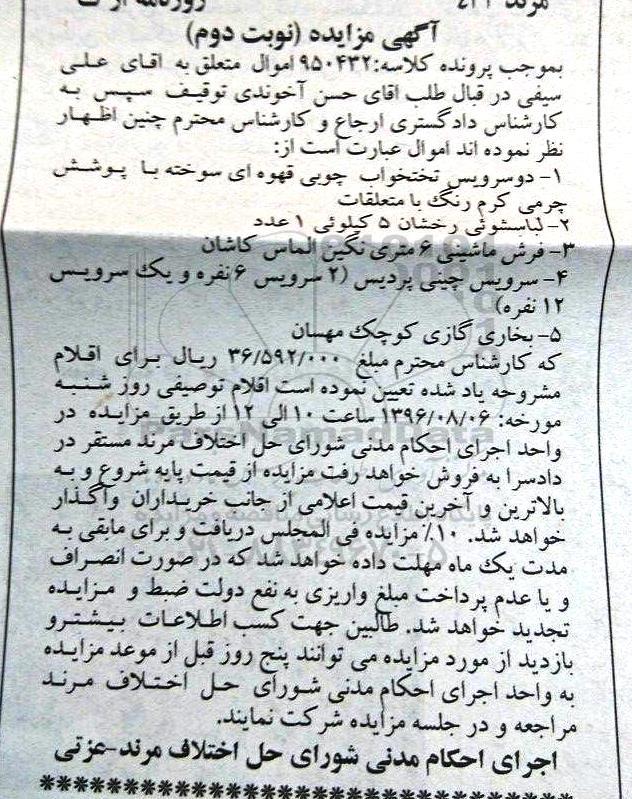 مرند
روزنامه
آگهی مزایده (نوبت دوم)
بموجب پرونده کلاسه:۹۵۰۴۳۲ اموال متعلق به اقای علی
سیفی در قبال طلب اقای حسن آخوندی توقیف سپس به
کارشناس دادگستری ارجاع و کارشناس محترم چنین اظهار
نظر نموده اند اموال عبارت است از:
۱- دوسرویس تختخواب چوبی قهوه ای سوخته با پوشش
چرمی کرم رنگ با متعلقات
۲- لباسشوئی رخشان ۵ کیلوئی ۱ عدد
۳- فرش ماشینی ۶ متری نگین الماس کاشان
۴- سرویس چینی پردیس (۲ سرویس ۶ نفره و یک سرویس
۱۲ نفره)
۵- بخاری گازی کوچک مهسان
که کارشناس محترم مبلغ ۳۶/۵۹۲/۰۰۰ ریال برای اقلام
مشروحه یاد شده تعیین نموده است اقلام توصیفی روز شنبه
مورخه: ۱۳۹۶/۰۸/۰۶ ساعت ۱۰ الی ۱۲ از طریق مزایده در
واحد اجرای احکام مدنی شورای حل اختلاف مرند مستقر در
دادسرا به فروش خواهد رفت مزایده از قیمت پایه شروع و به
بالاترین و آخرین قیمت اعلامی از جانب خریداران واگذار
خواهد شد. ۱۰٪ مزایده فی المجلس دریافت و برای مابقی به
مدت یک ماه مهلت داده خواهد شد که در صورت انصراف
و یا عدم پرداخت مبلغ واریزی به نفع دولت ضبط و مزایده
تجدید خواهد شد. طالبین جهت کسب اطلاعات بیشترو
بازدید از مورد مزایده می توانند پنج روز قبل از موعد مزایده
به واحد اجرای احکام مدنی شورای حل اختلاف مرند
مراجعه و در جلسه مزایده شرکت نمایند.
اجرای احکام مدنی شورای حل اختلاف مرند-عزتی
ParsNamadData